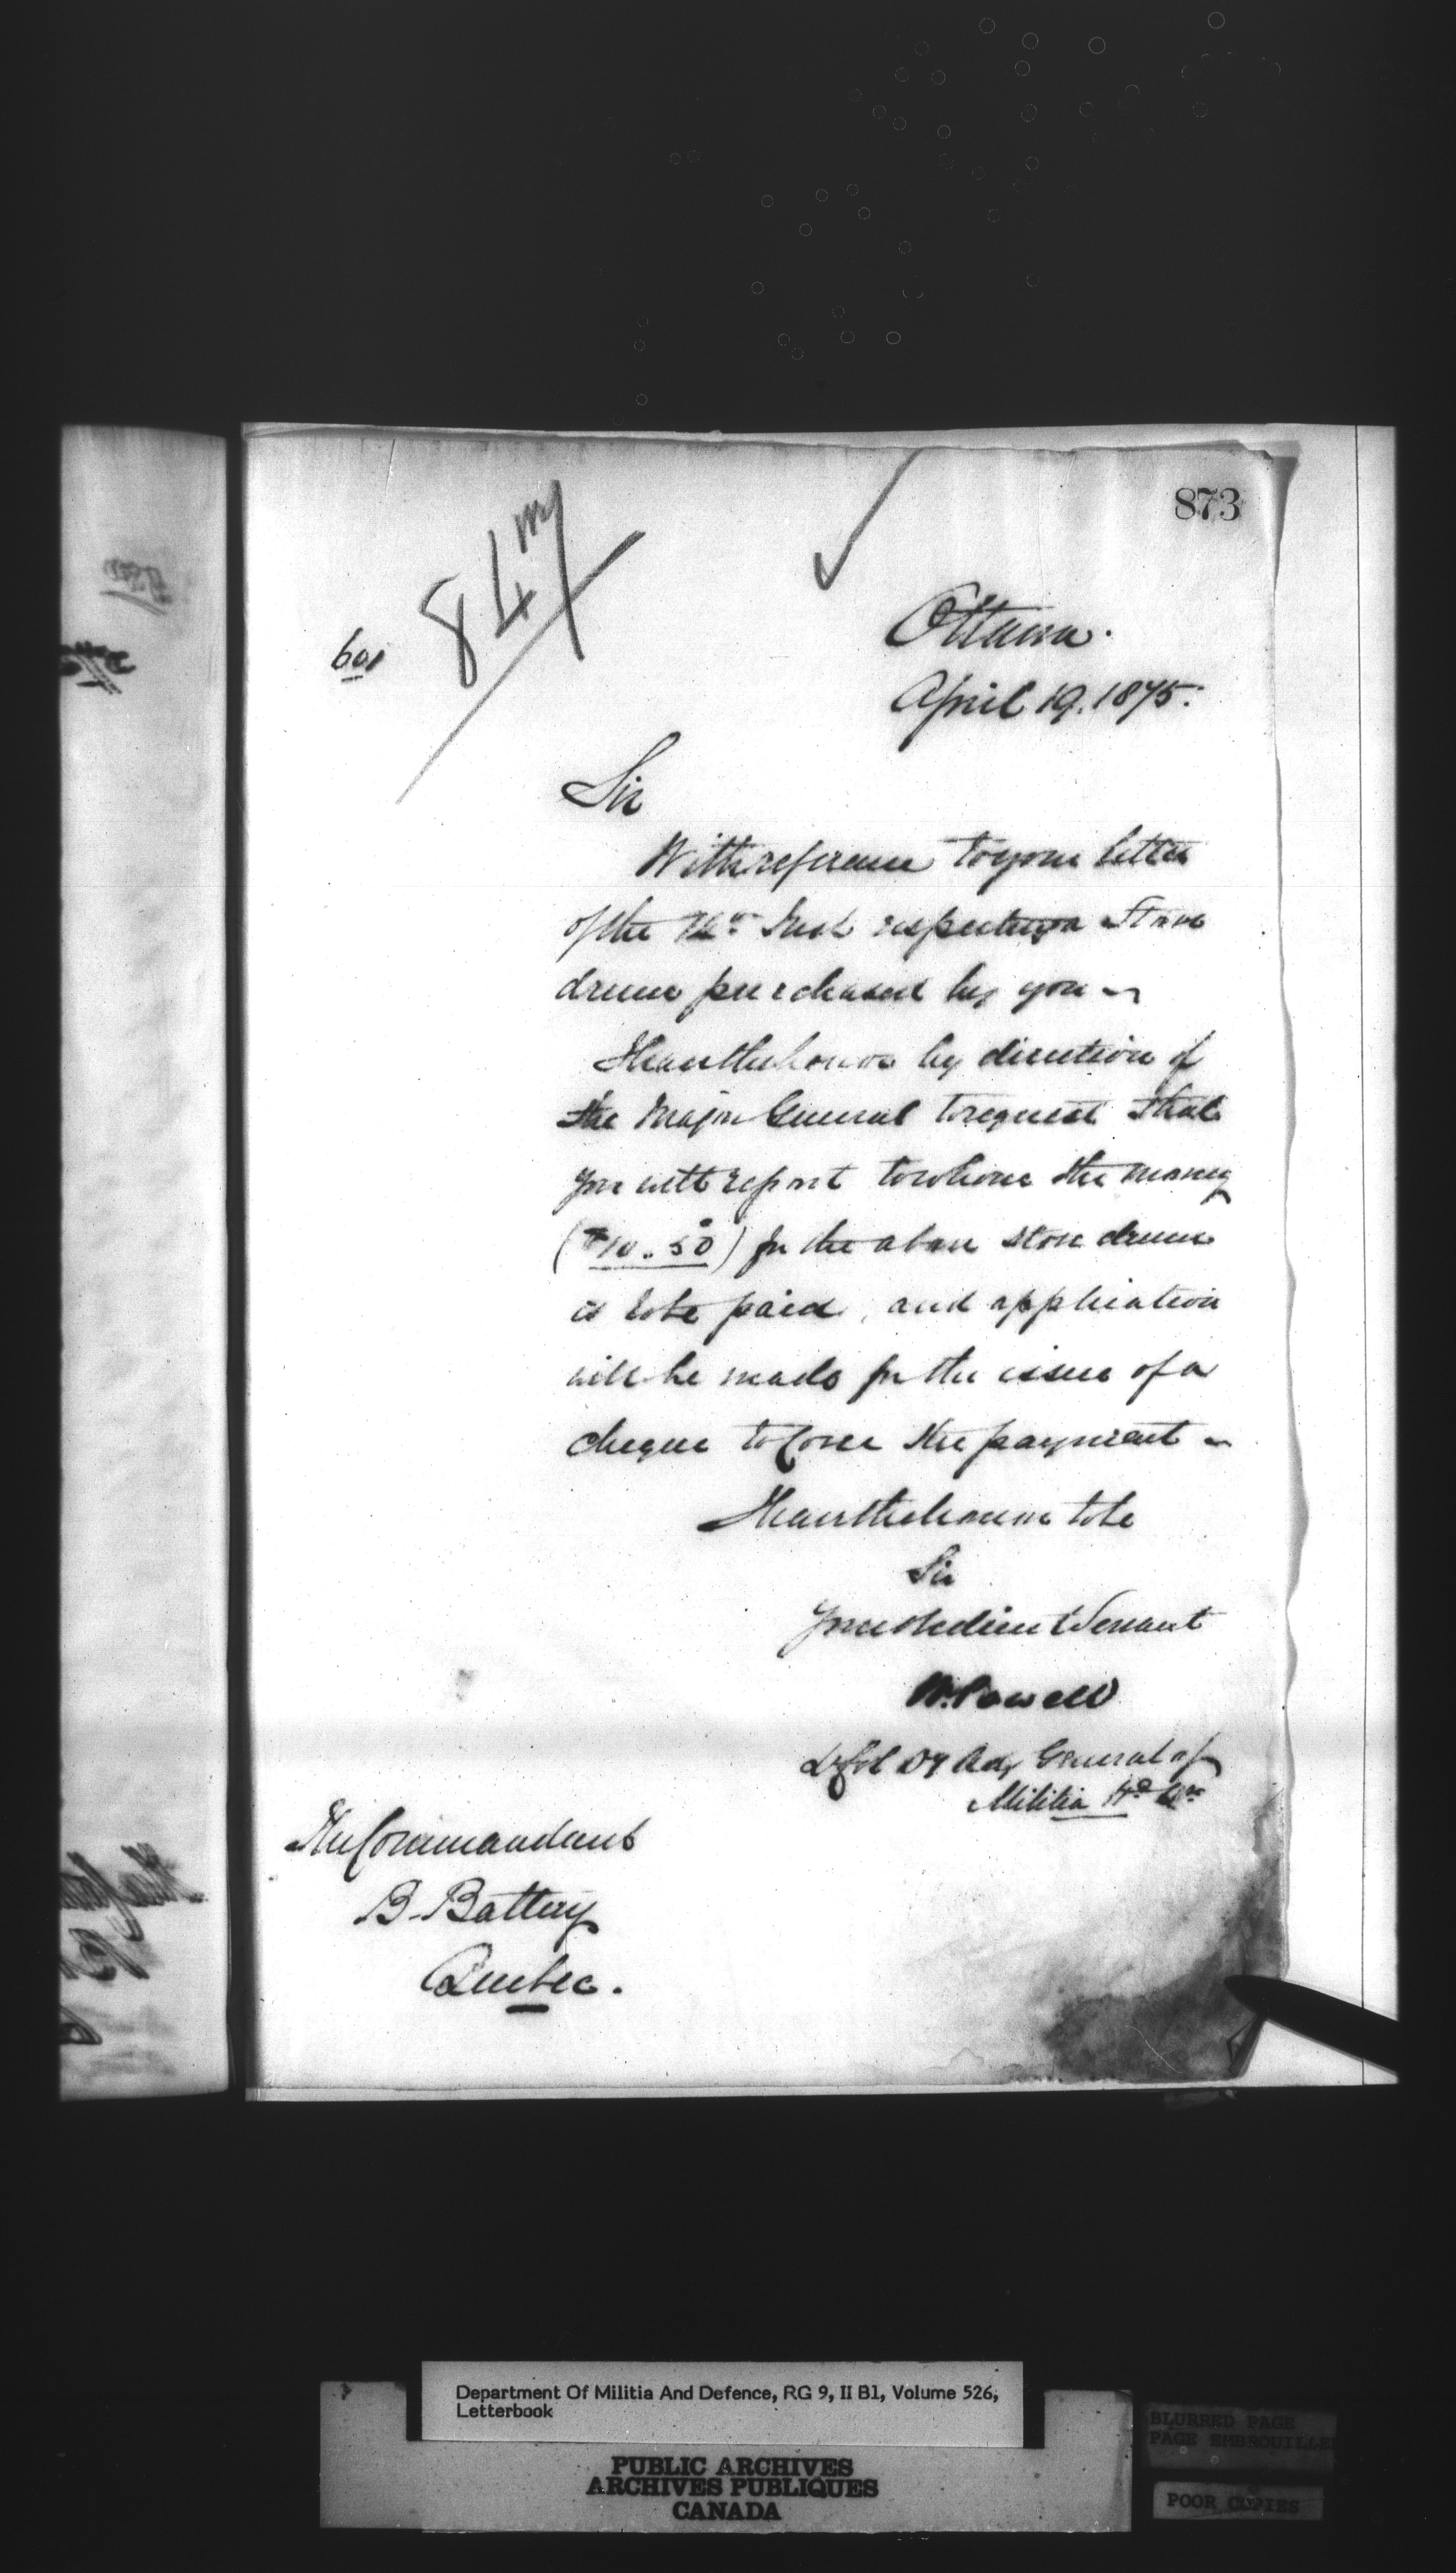 873
84
601
Ottawa.
April 19. 1875.
Sir
With reference to your letter
of the 12th Inst respecting a Stove
drum purchased by you –
I have the honor by direction of
the Major General to request that
you will report to whom the money
($10.50) for the above stove drum
is to be paid, and application
will be made for the issue of a
cheque to cover the payment –
I have the honor to be
Sir
Your obedient Servant
W. Powell
Lt Col Dy Adj General of
Militia Hd Qrs
The Commandant
B. Battery
Quebec.
Department Of Militia And Defence, RG 9, II B1, Volume 526,
Letterbook
PUBLIC ARCHIVES
ARCHIVES PUBLIQUES
CANADA
BLURRED PAGE
PAGE EMBROUILLEE
POOR COPIES